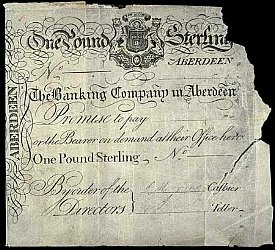 One Pound Sterlin
No
ABERDEEN
ABERDEEN
The Banking Company in Aberdeen
Promise to pay
or the Bearer on demand at their Office here
One Pound Sterling No
By order of the Cashier
Directors Teller